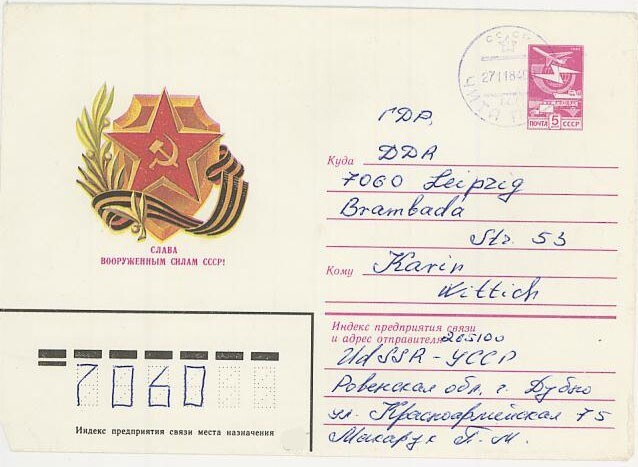 СССР
27 11 84
ПОЧТА 5 СССР
ГДР,
Куда DDR
7060 Leipzig
Brambada
Str. 53
Кому Karin
Wittich
СЛАВА
ВООРУЖЕННЫМ СИЛАМ СССР!
Индекс предприятия связи
и адрес отправителя 265100
UdSSR - УССР
Ровенская обл. г. Дубно
ул. Красноармейская 75
Макарук П. М.
7060
Индекс предприятия связи места назначения